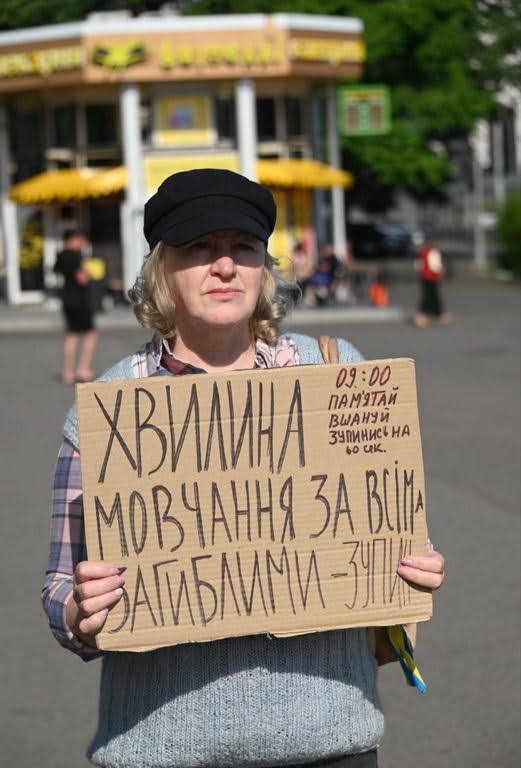 09:00
ПАМ'ЯТАЙ
ВШАНУЙ
ЗУПИНИСЬ НА
60 СЕК.
ХВИЛИНА
МОВЧАННЯ ЗА ВСІМА
ЗАГИБЛИМИ – ЗУПИН